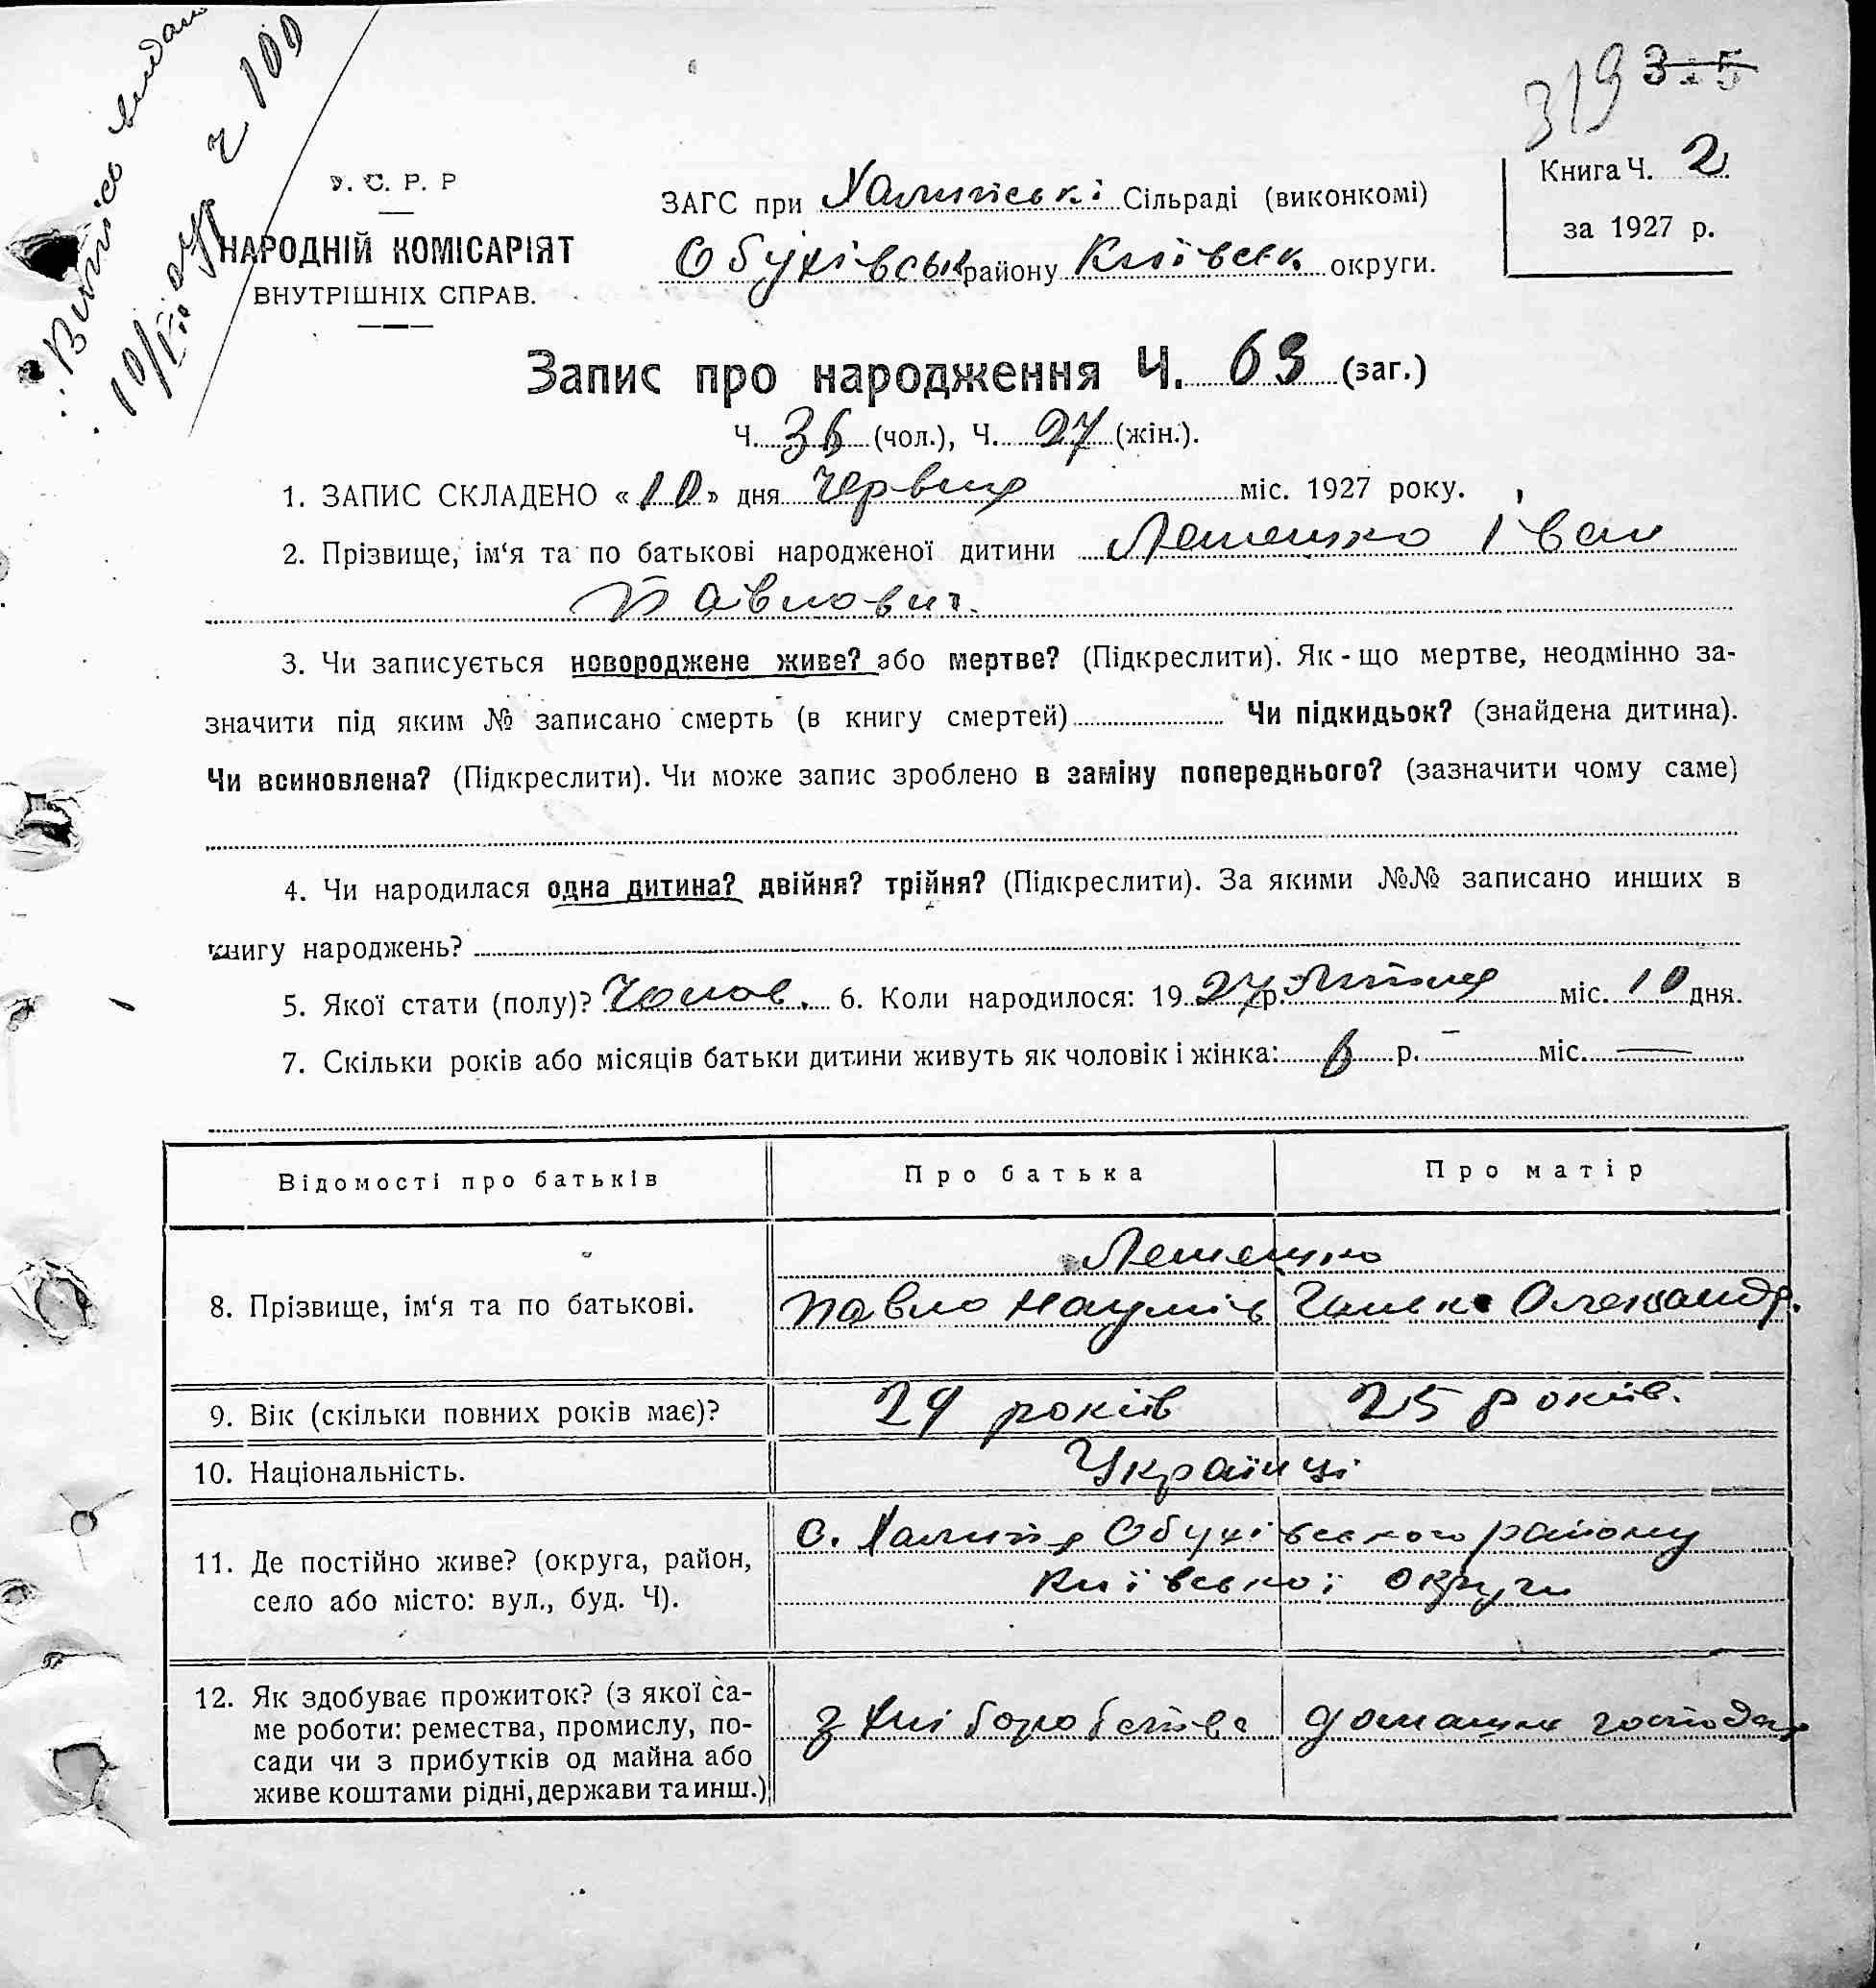 Випись видано
10/II
ч 100
319 325
У. С. Р. Р
НАРОДНІЙ КОМІСАРІЯТ
ВНУТРІШНІХ СПРАВ.
ЗАГС при Халепські Сільраді (виконкомі)
Обухівськ району Київськ. округи.
Книга Ч. 2
за 1927 р.
Запис про народження Ч. 63 (заг.)
Ч. 36 (чол.), Ч. 27 (жін.).
1. ЗАПИС СКЛАДЕНО «10» дня червня міс. 1927 року.
2. Прізвище, ім‘я та по батькові народженої дитини Лемешко Іван
Павлович.
3. Чи записується новороджене живе? або мертве? (Підкреслити). Як-що мертве, неодмінно за-
значити під яким № записано смерть (в книгу смертей) Чи підкидьок? (знайдена дитина).
Чи всиновлена? (Підкреслити). Чи може запис зроблено в заміну попереднього? (зазначити чому саме)
4. Чи народилася одна дитина? двійня? трійня? (Підкреслити). За якими №№ записано инших в
книгу народжень?
5. Якої стати (полу)? Чолов. 6. Коли народилося: 1927 р. міс. 10 дня.
7. Скільки років або місяців батьки дитини живуть як чоловік і жінка: 6 р. – міс. —
Відомості про батьків
Про батька
Про матір
8. Прізвище, ім‘я та по батькові.
Лемешко
Павло Наумів
Ганна Олександр.
9. Вік (скільки повних років має)?
29 років
25 років.
10. Національність.
Українці
11. Де постійно живе? (округа, район,
село або місто: вул., буд. Ч).
с. Халепья Обухівського району
Київської округи
12. Як здобуває прожиток? (з якої са-
ме роботи: ремества, промислу, по-
сади чи з прибутків од майна або
живе коштами рідні, держави та инш.)
з хліборобства
домашня господар